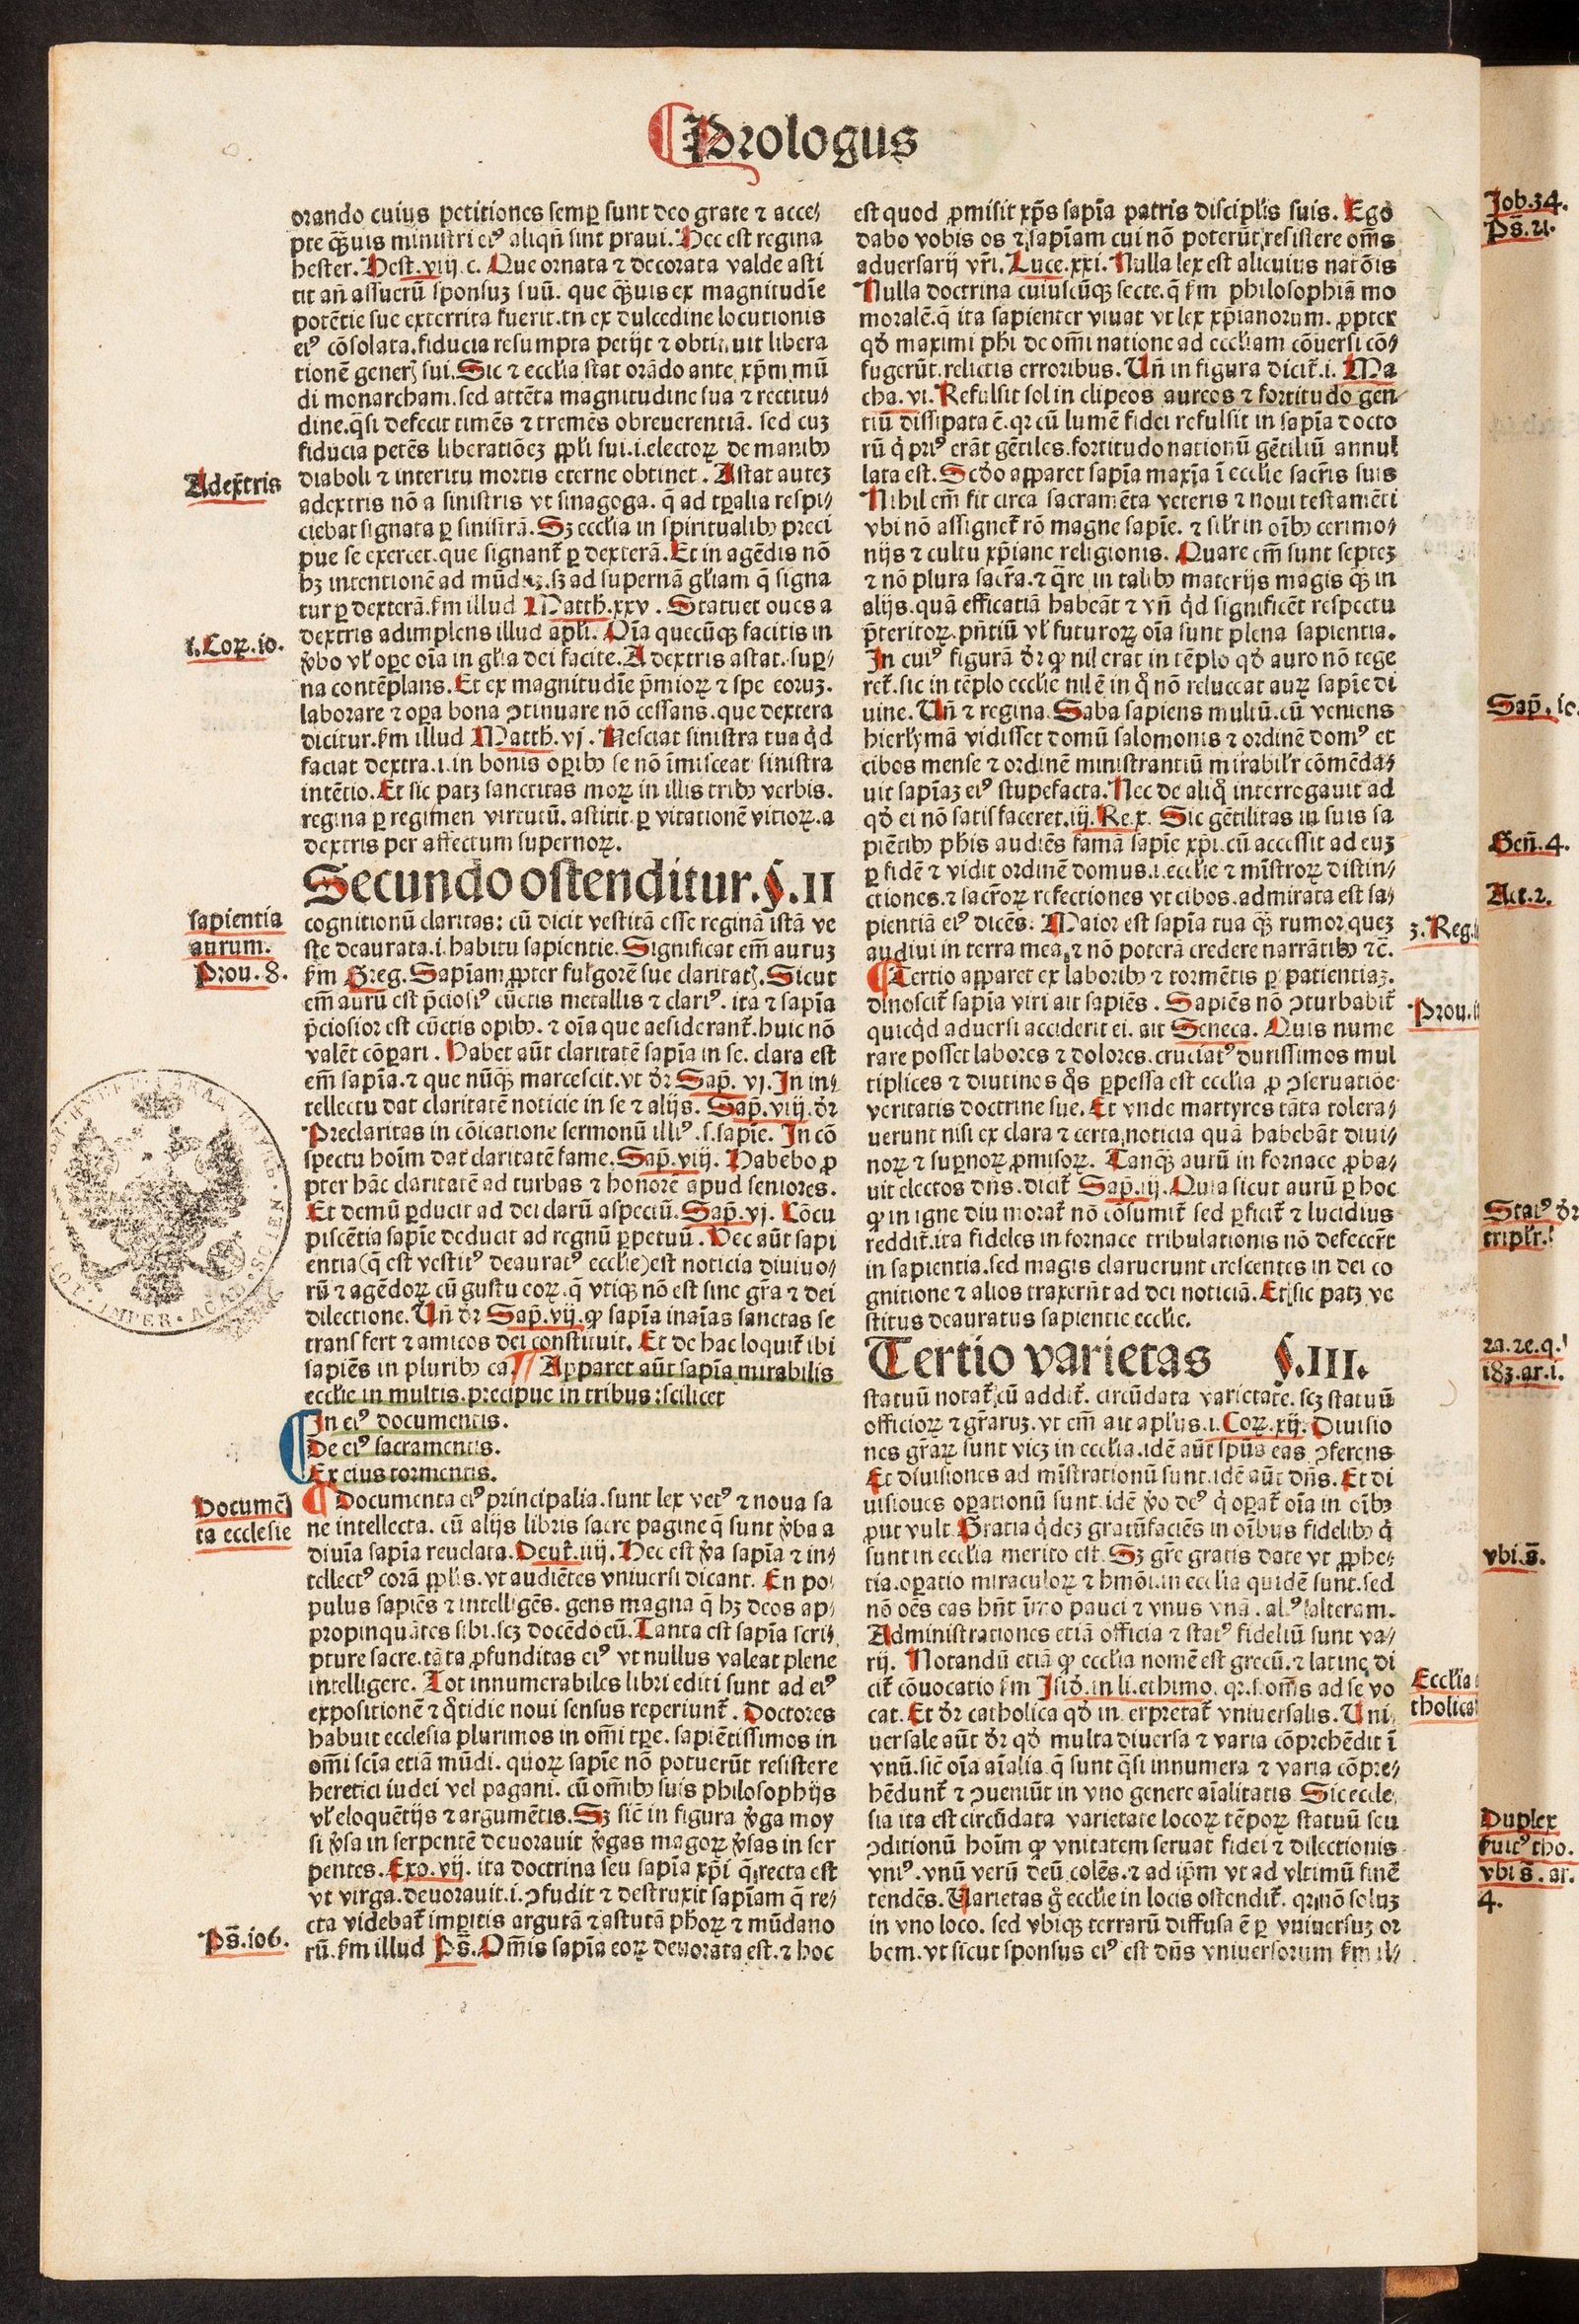 Prologus
orando cuius petitiones semꝑ sunt deo grate ⁊ acce⸗
pte qꝫuis ministri eiꝰ aliqñ sint praui. Hec est regina
hester. Hest. viij. c. Que ornata ⁊ decorata valde asti
tit añ assuerū sponsuꝫ suū. que qꝫuis ex magnitudīe
potētie sue exterrita fuerit. tñ ex dulcedine locutionis
eiꝰ cōsolata. fiducia resumpta petijt ⁊ obtinuit libera
tionē generꝭ sui. Sic ⁊ ecclīa stat orādo ante xp̄m mū
di monarcham. sed attēta magnitudine sua ⁊ rectitu⸗
dine. q̄si defecit timēs ⁊ tremēs ob reuerentiā. sed cuꝫ
fiducia petēs liberatiōeꝫ ꝓpl̄i sui. i. electoꝝ de manibꝰ
diaboli ⁊ interitu mortis eterne obtinet. Astat auteꝫ
Adextris
adextris nō a sinistris vt sinagoga. q̄ ad tꝑalia respi⸗
ciebat signata ꝑ sinistrā. Sꝫ ecclīa in spiritualibꝰ preci
pue se exercet. que signant̄ ꝑ dexterā. Et in agēdis nō
hꝫ intentionē ad mūdū. sꝫ ad supernā gl̄iam q̄ signa
tur ꝑ dexterā. s̄m illud Matth. xxv. Statuet oues a
dextris adimplens illud apl̄i. Oīa quecūqꝫ facitis in
1. Coꝝ. 10.
v̄bo vl̄ oꝑe oīa in gl̄ia dei facite. A dextris astat. suꝑ⸗
na contēplans. Et ex magnitudīe p̄mioꝝ ⁊ spe eoruꝫ.
laborare ⁊ oꝑa bona ꝯtinuare nō cessans. que dextera
dicitur. s̄m illud Matth. vj. Nesciat sinistra tua qd̄
faciat dextra. i. in bonis oꝑibꝰ se nō īmisceat sinistra
intētio. Et sic patꝫ sanctitas moꝝ in illis tribꝰ verbis.
regina ꝑ regimen virtutū. astitit ꝑ vitationē vitioꝝ. a
dextris per affectum supernoꝝ.
Secundo ostenditur. §. II
cognitionū claritas: cū dicit vestitā esse reginā istā ve
sapientia
aurum.
Prou. 8.
ste deaurata. i. habitu sapientie. Significat em̄ auruꝫ
s̄m Greg. Sapīam ꝓpter fulgorē sue claritatꝭ. Sicut
em̄ aurū est p̄ciosiꝰ cūctis metallis ⁊ clariꝰ. ita ⁊ sapīa
p̄ciosior est cūctis opibꝰ. ⁊ oīa que desiderant̄. huic nō
valēt cōpari. Habet aūt claritatē sapīa in se. clara est
em̄ sapīa. ⁊ que nūqꝫ marcescit. vt dr̄ Sap̄. vj. In in⸗
tellectu dat claritatē noticie in se ⁊ alijs. Sap̄. viij. dr̄
Preclaritas in cōicatione sermonū illiꝰ. s. sapīe. In cō
spectu hoīm dat claritatē fame. Sap̄. viij. Habebo ꝓ
pter hāc claritatē ad turbas ⁊ honorē apud seniores.
Et demū ꝑducit ad dei clarū aspectū. Sap̄. vj. Cōcu
piscētia sapīe deducit ad regnū ꝑpetuū. Hec aūt sapi
entia (q̄ est vestitꝰ deauratꝰ ecclīe) est noticia diuino⸗
rū ⁊ agēdoꝝ cū gustu eoꝝ. q̄ vtiqꝫ nō est sine gr̄a ⁊ dei
dilectione. Uñ dr̄ Sap̄. vij. ꝙ sapīa in aīas sanctas se
transfert ⁊ amicos dei constituit. Et de hac loquit̄ ibi
sapiēs in pluribꝰ ca Apparet aūt sapīa mirabilis
ecclīe in multis. precipue in tribus: scilicet
In eiꝰ documentis.
De eiꝰ sacramentis.
Ex eius tormentis.
Documē
ta ecclesie
Documenta eiꝰ principalia. sunt lex vetꝰ ⁊ noua sa
ne intellecta. cū alijs libris sacre pagine q̄ sunt v̄ba a
diuīa sapīa reuelata. Deut̄. iiij. Hec est v̄a sapīa ⁊ in⸗
tellectꝰ corā ꝓpl̄is. vt audiētes vniuersi dicant. En po⸗
pulus sapiēs ⁊ intelligēs. gens magna q̄ hꝫ deos ap⸗
propinquātes sibi. scꝫ docēdo eū. Tanta est sapīa scri⸗
pture sacre. tāta ꝓfunditas eiꝰ vt nullus valeat plene
intelligere. Tot innumerabiles libri editi sunt ad eiꝰ
expositionē ⁊ q̄tidie noui sensus reperiunt̄. Doctores
habuit ecclesia plurimos in om̄i tꝑe. sapiētissimos in
om̄i scīa etiā mūdi. quoꝝ sapīe nō potuerūt resistere
heretici iudei vel pagani. cū om̄ibꝰ suis philosophijs
vl̄ eloquētijs ⁊ argumētis. Sꝫ sic̄ in figura v̄ga moy
si v̄sa in serpentē deuorauit v̄gas magoꝝ v̄sas in ser
pentes. Exo. vij. ita doctrina seu sapīa xp̄i q̄ recta est
vt virga. deuorauit. i. ꝯfudit ⁊ destruxit sapīam q̄ re⸗
cta videbat̄ imꝑitis argutā ⁊ astutā ph̄oꝝ ⁊ mūdano
Ps̄. 106.
rū. s̄m illud Ps̄. Om̄is sapīa eoꝝ deuorata est. ⁊ hoc
est quod ꝓmisit xp̄s sapīa patris discipl̄is suis. Ego
dabo vobis os ⁊ sapīam cui nō poterūt resistere om̄s
aduersarij vr̄i. Luce. xxi. Nulla lex est alicuius natōis
Nulla doctrina cuiuscūqꝫ secte. q̄ s̄m philosophiā mo
moralē. q̄ ita sapienter viuat vt lex xp̄ianorum. ꝓpter
qd̄ maximi ph̄i de om̄i natione ad eccl̄iam cōuersi cō⸗
fugerūt. relictis erroribus. Uñ in figura dicit̄. i. Ma
cha. vi. Refulsit sol in clipeos aureos ⁊ fortitudo gen
tiū dissipata ē. qꝛ cū lumē fidei refulsit in sapīa docto
rū q̄ priꝰ erāt gētiles. fortitudo nationū gētiliū annul
lata est. Scd̄o apparet sapīa maxīa ī ecclīe sacr̄is suis
Nihil em̄ fit circa sacramēta veteris ⁊ noui testamēti
vbi nō assignet̄ rō magne sapīe. ⁊ sil̄r in oībꝰ cerimo⸗
nijs ⁊ cultu xp̄iane religionis. Quare em̄ sunt septeꝫ
⁊ nō plura sacr̄a. ⁊ q̄re in talibꝰ materijs magis qꝫ in
alijs. quā efficatiā habeāt ⁊ vñ qd̄ significēt respectu
p̄teritoꝝ. pn̄tiū vl̄ futuroꝝ oīa sunt plena sapientia.
In cuiꝰ figurā dr̄ ꝙ nil erat in tēplo qd̄ auro nō tege
ret̄. sic in tēplo ecclīe nil ē in q̄ nō reluceat auꝝ sapīe di
uine. Uñ ⁊ regina Saba sapiens multū. cū veniens
hierl̄ymā vidisset domū salomonis ⁊ ordinē domꝰ et
cibos mense ⁊ ordinē ministrantiū mirabil̄r cōmēda⸗
uit sapīaꝫ eiꝰ stupefacta. Nec de aliq̄ interrogauit ad
qd̄ ei nō satisfaceret. iij. Re. x. Sic gētilitas in suis sa
piētibꝰ ph̄is audiēs famā sapīe xp̄i. cū accessit ad euꝫ
ꝑ fidē ⁊ vidit ordinē domus. i. ecclīe ⁊ mīstroꝝ distin⸗
ctiones. ⁊ sacr̄oꝝ refectiones vt cibos. admirata est sa⸗
pientiā eiꝰ dicēs. Maior est sapīa tua qꝫ rumor queꝫ
3. Reg.
audiui in terra mea, ⁊ nō poterā credere narrātibꝰ ⁊c̄.
Tertio apparet ex laboribꝰ ⁊ tormētis ꝑ patientiaꝫ.
dinoscit̄ sapīa viri ait sapiēs. Sapiēs nō ꝯturbabit̄
Prou.
quicqd̄ aduersi acciderit ei. ait Seneca. Quis nume
rare posset labores ⁊ dolores. cruciatꝰ durissimos mul
tiplices ⁊ diutinos q̄s ꝑpessa est ecclīa ꝓ ꝯseruatiōe
veritatis doctrine sue. Et vnde martyres tāta tolera⸗
uerunt nisi ex clara ⁊ certa noticia quā habebāt diui⸗
noꝝ ⁊ suꝑnoꝝ ꝓmisoꝝ. Tanqꝫ aurū in fornace ꝓba⸗
uit electos dn̄s. dicit̄ Sap̄. iij. Quia sicut aurū ꝑ hoc
ꝙ in igne diu morat̄ nō cōsumit̄ sed ꝑficit̄ ⁊ lucidius
reddit̄. ita fideles in fornace tribulationis nō defecer̄t
in sapientia. sed magis claruerunt crescentes in dei co
gnitione ⁊ alios traxerūt ad dei noticiā. Et sic patꝫ ve
stitus deauratus sapientie ecclīe.
Tertio varietas §. III.
statuū notat̄, cū addit̄. circūdata varietate. scꝫ statuū
officioꝝ ⁊ gr̄aruꝫ. vt em̄ ait apl̄us. i. Coꝝ. xij. Diuisio
nes gr̄aꝝ sunt vicꝫ in ecclīa. idē aūt sp̄us eas ꝯferens
Et diuisiones ad mīstrationū sunt. idē aūt dn̄s. Et di
uisiones oꝑationū sunt. idē v̄o deꝰ q̄ oꝑat̄ oīa in oībꝰ
ꝓut vult. Gratia q̄deꝫ gratūfaciēs in oībus fidelibꝰ q̄
sunt in ecclīa merito est. Sꝫ gr̄e gratis date vt ꝓphe⸗
tia. oꝑatio miraculoꝝ ⁊ hmōi. in ecclīa quidē sunt. sed
nō oēs eas hn̄t īmo pauci ⁊ vnus vnā. alꝰ alteram.
Administrationes etiā officia ⁊ statꝰ fideliū sunt va⸗
rij. Notandū etiā ꝙ ecclīa nomē est grecū. ⁊ latine di
Ecclīa
tholica
cit̄ cōuocatio s̄m Isid̄. in li. ethimo. qꝛ. s. om̄s ad se vo
cat. Et dr̄ catholica qd̄ interpretat̄ vniuersalis. Uni⸗
uersale aūt dr̄ qd̄ multa diuersa ⁊ varia cōprehēdit ī
vnū. sic̄ oīa aīalia q̄ sunt q̄si innumera ⁊ varia cōpre⸗
hēdunt̄ ⁊ ꝯueniūt in vno genere aīalitatis Sic eccle⸗
sia ita est circūdata varietate locoꝝ tēpoꝝ statuū seu
ꝯditionū hoīm ꝙ vnitatem seruat fidei ⁊ dilectionis
vniꝰ. vnū verū deū colēs. ⁊ ad ip̄m vt ad vltimū finē
tendēs. Varietas g̊ ecclīe in locis ostendit̄. qꝛ nō soluꝫ
in vno loco. sed vbiqꝫ terrarū diffusa ē ꝑ vniuersuꝫ or
bem. vt sicut sponsus eiꝰ est dn̄s vniuersorum s̄m il⸗
Job. 34.
Ps̄. 21.
Sap̄. 10.
Gen̄. 4.
Act. 2.
Statꝰ dr̄
tripl̄r.
2a. 2e. q.
183. ar. 1.
vbi. s̄.
Duplex
fuitꝰ tho.
vbi s̄. ar.
4.